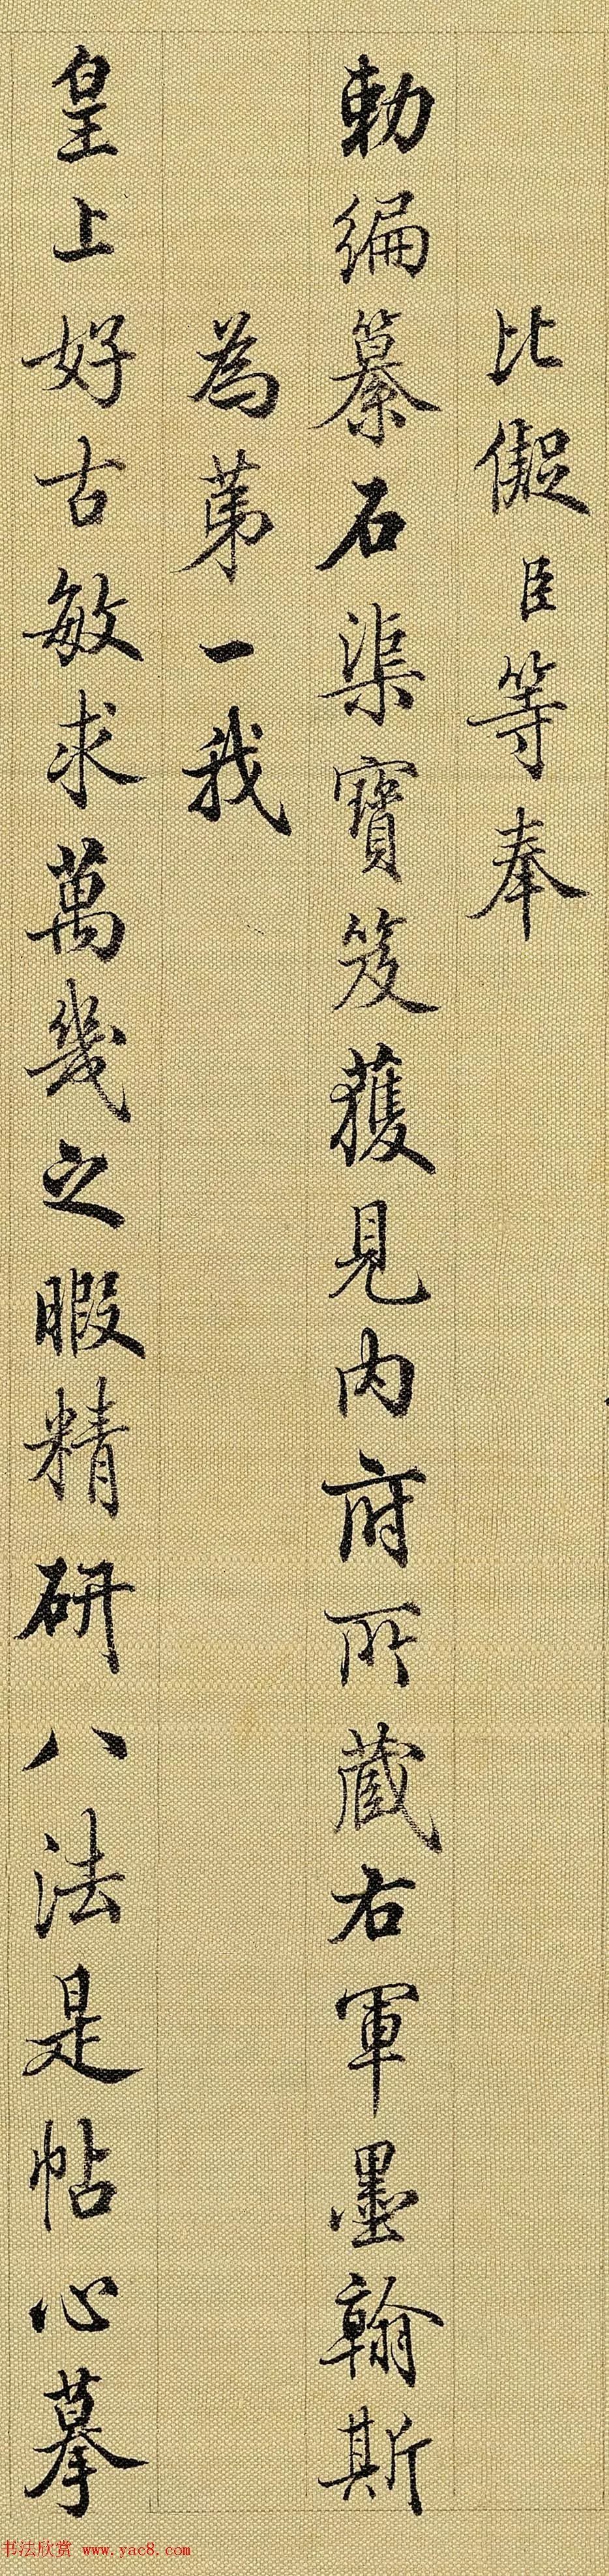 比儗臣等奉
勅編纂石渠寶笈獲見内府所蔵右軍墨翰斯
為苐一我
皇上好古敏求萬幾之暇精研八法是帖心摹
书法欣赏 www.yac8.com